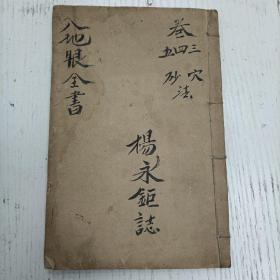 卷三穴
四
五砂法
楊永鉅誌
八地眼全書